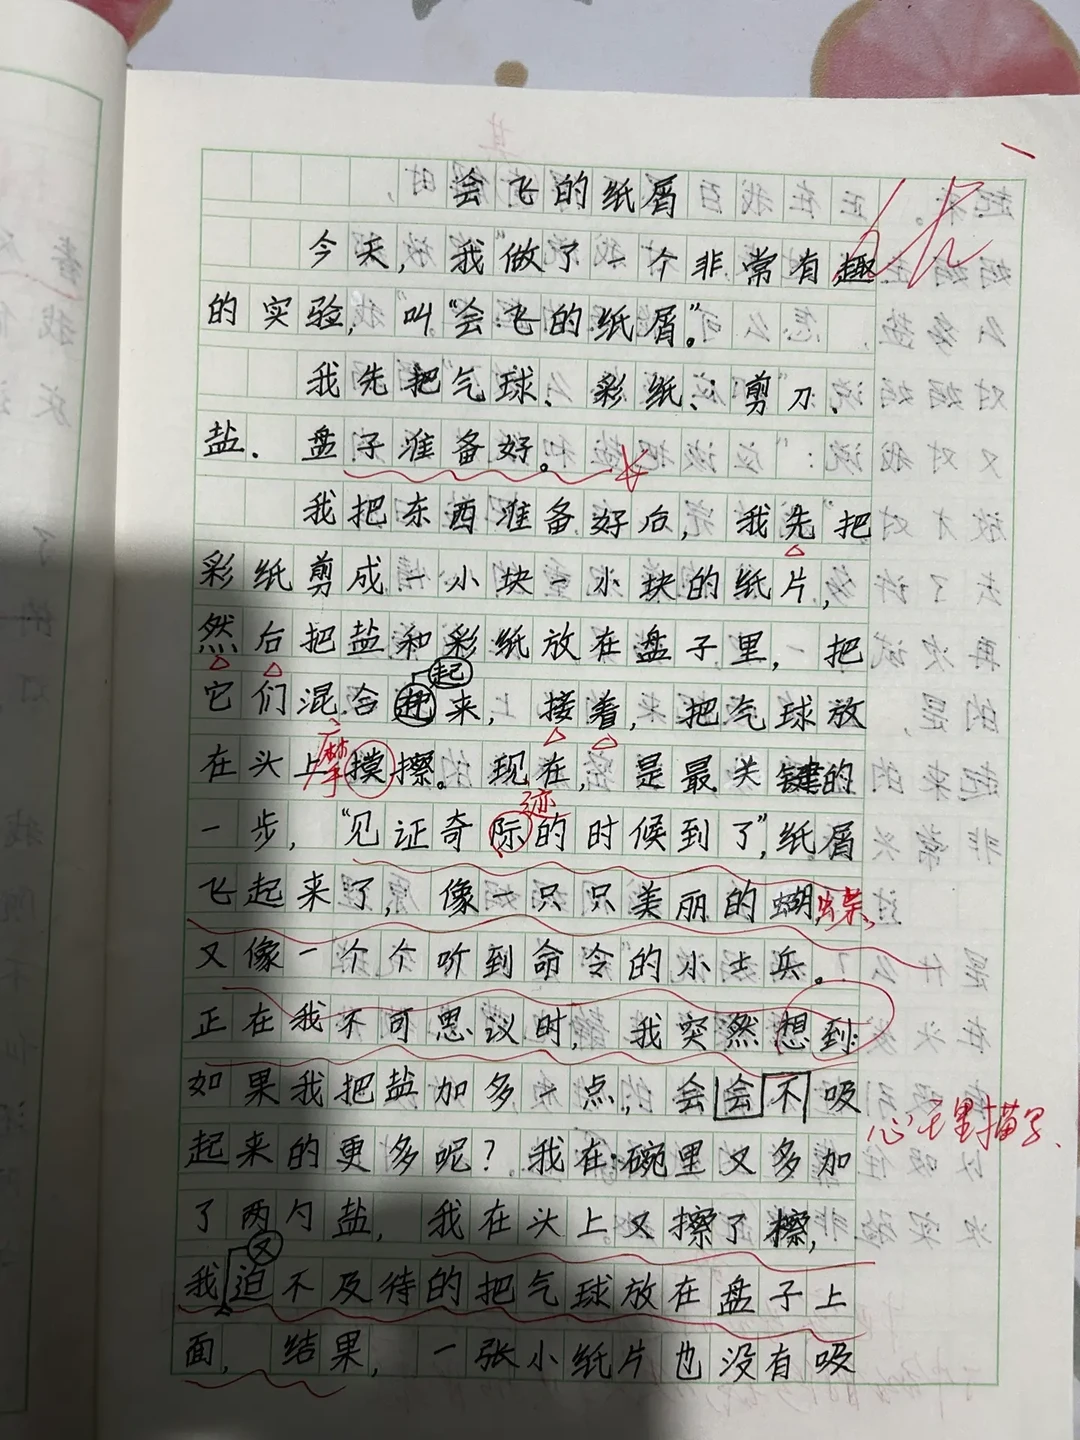 会飞的纸屑
今天，我做了一个非常有趣
的实验，叫“会飞的纸屑”。
我先把气球、彩纸、剪刀、
盐、盘子准备好。
我把东西准备好后，我先把
彩纸剪成一小块一小块的纸片，
然后把盐和彩纸放在盘子里，把
起
它们混合起来，接着，把气球放
摩
在头上摸擦。现在，是最关键的
迹
一步，“见证奇际的时候到了”，纸屑
飞起来了，像一只只美丽的蝴蝶，
又像一个个听到命令的小士兵。
正在我不可思议时，我突然想到：
如果我把盐加多一点，会会不吸
心里描写
起来的更多呢？我在碗里又多加
了两勺盐，我在头上又擦了擦，
又
我迫不及待的把气球放在盘子上
面，结果，一张小纸片也没有吸